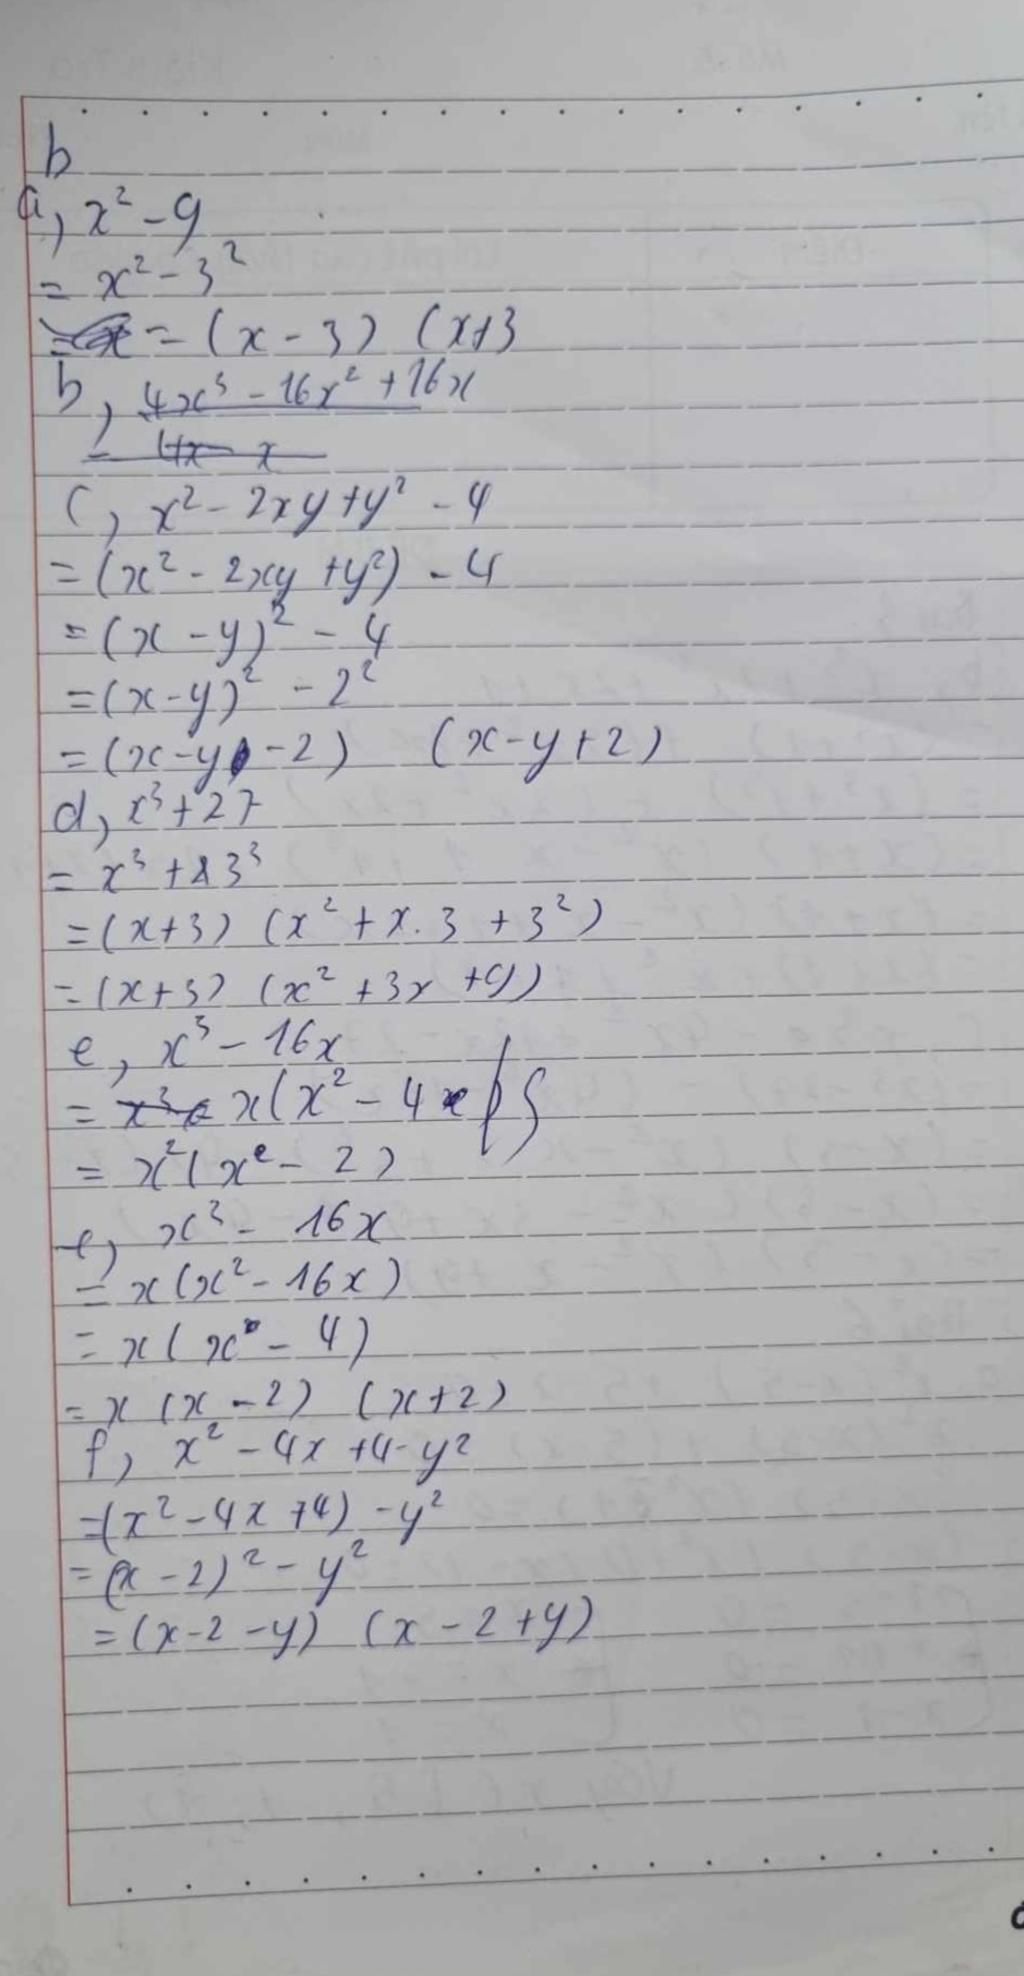 b
a, x² - 9
= x² - 3²
= (x - 3) (x+3
b, 4x³ - 16x² + 16x
= 4x x
c, x² - 2xy + y² - 4
= (x² - 2xy + y²) - 4
= (x - y)² - 4
= (x - y)² - 2²
= (x - y - 2) (x - y + 2)
d, x³ + 27
= x³ + 3³
= (x + 3) (x² + x. 3 + 3²)
= (x + 3) (x² + 3x + 9)
e, x³ - 16x
= x³ x(x² - 4
= x²(x - 2)
e, x³ - 16x
= x(x² - 16x)
= x(x - 4)
= x (x - 2) (x + 2)
f, x² - 4x + 4 - y²
= (x² - 4x + 4) - y²
= (x - 2)² - y²
= (x - 2 - y) (x - 2 + y)